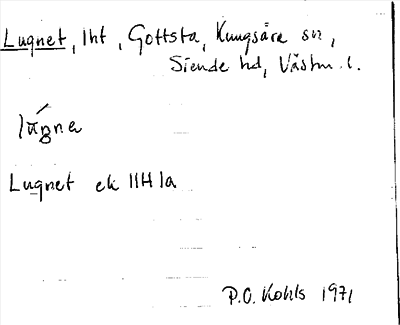 Lugnet, lht, Gottsta, Kungsåra sn,
Siende hd, Västm. l.
lúŋna
Lugnet ek 11H1a
P.O. Kohls 1971